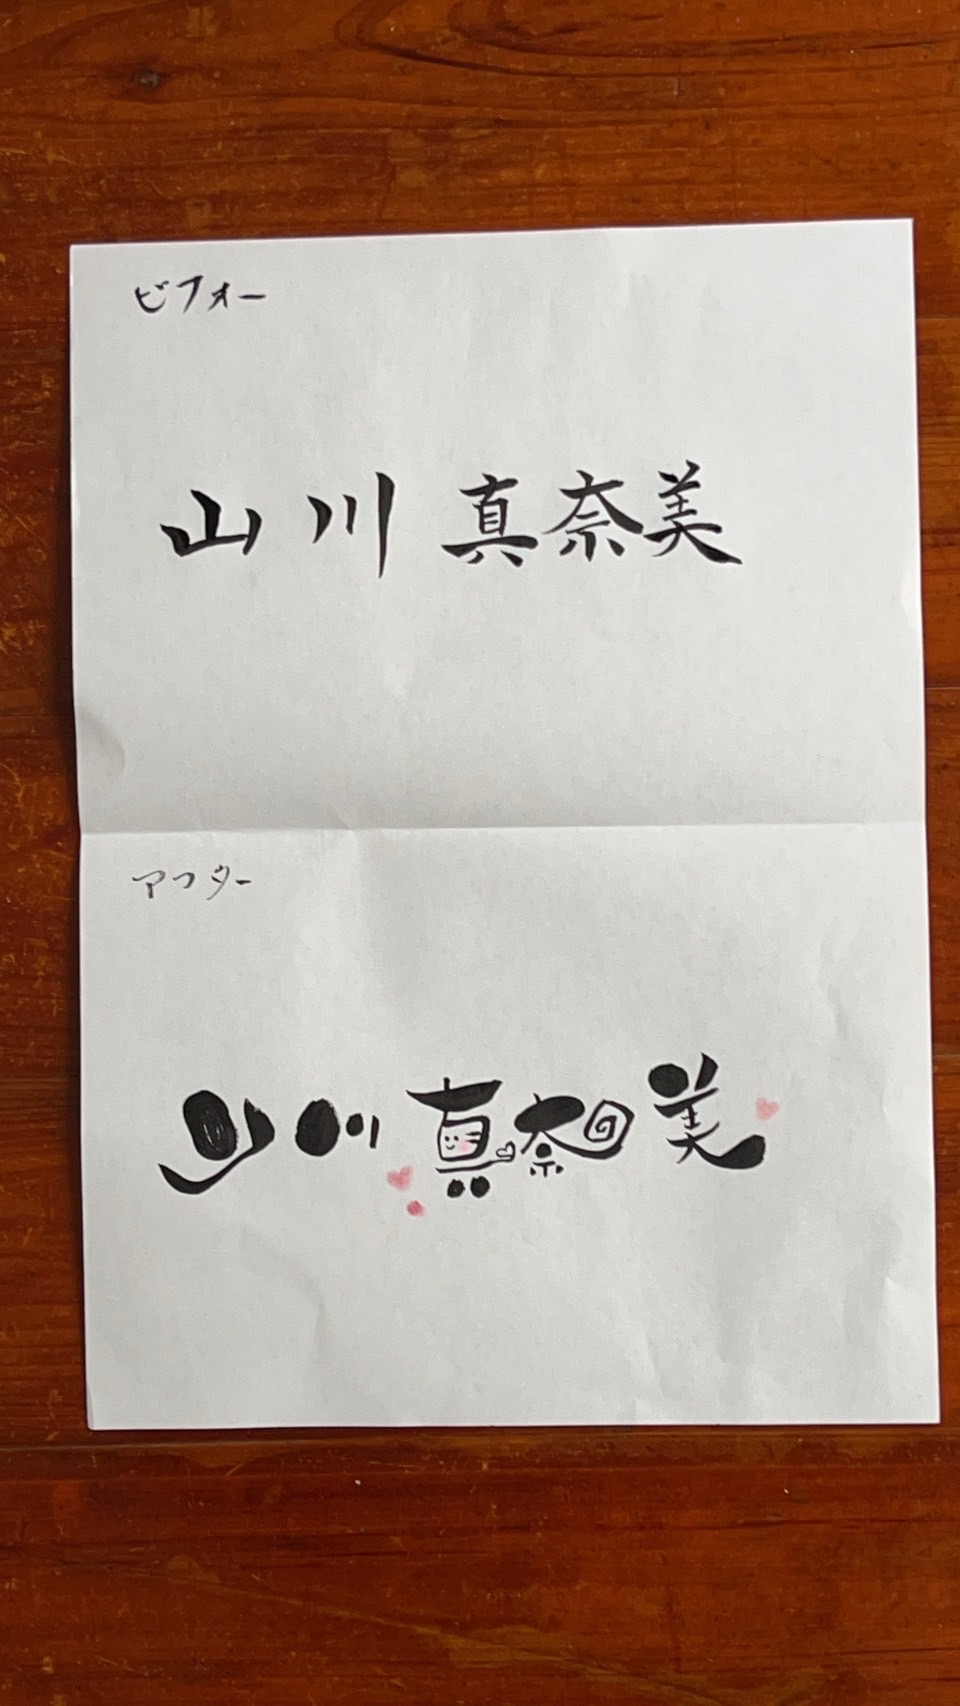 ビフォー
山川 真奈美
アフター
山川真奈美